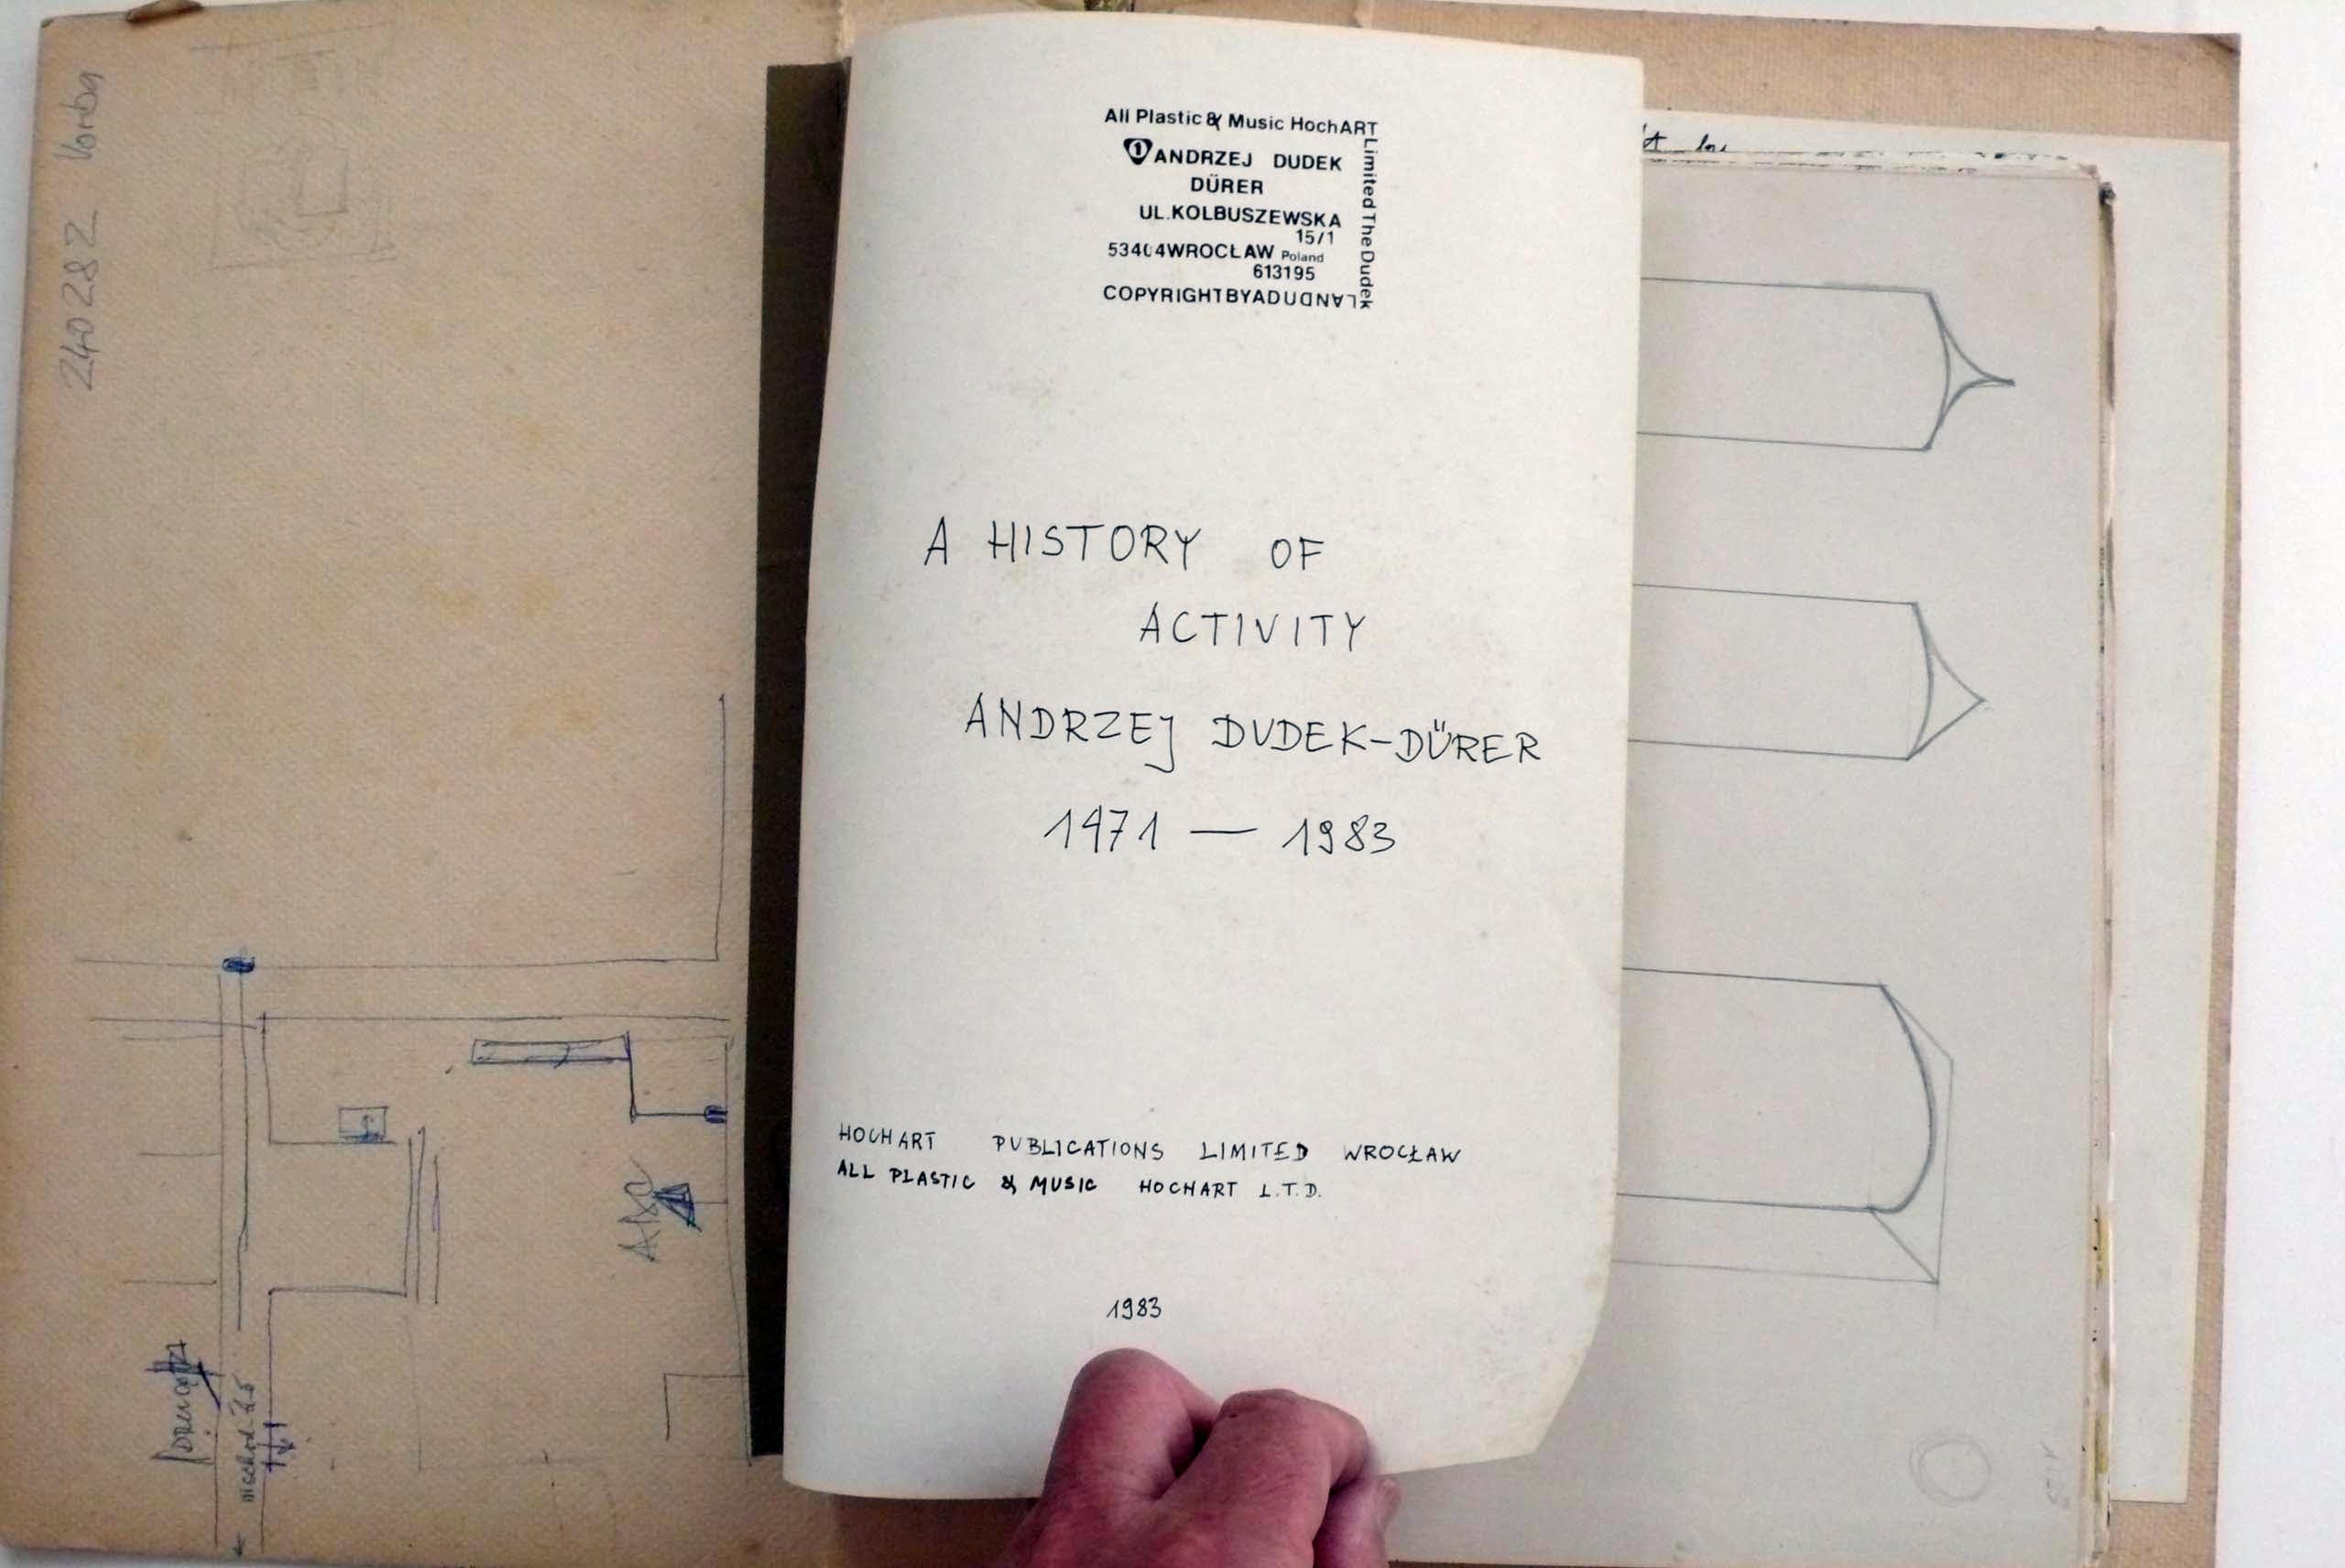 240282 Vorba
All Plastic & Music HochART
Limited The Dudek
1 ANDRZEJ DUDEK
DÜRER
UL.KOLBUSZEWSKA
15/1
53404WROCŁAW Poland
613195
COPYRIGHTBYADUDNAL
A HISTORY OF
ACTIVITY
ANDRZEJ DUDEK-DÜRER
1471 — 1983
HOCHART PUBLICATIONS LIMITED WROCŁAW
ALL PLASTIC & MUSIC HOCHART L.T.D.
1983